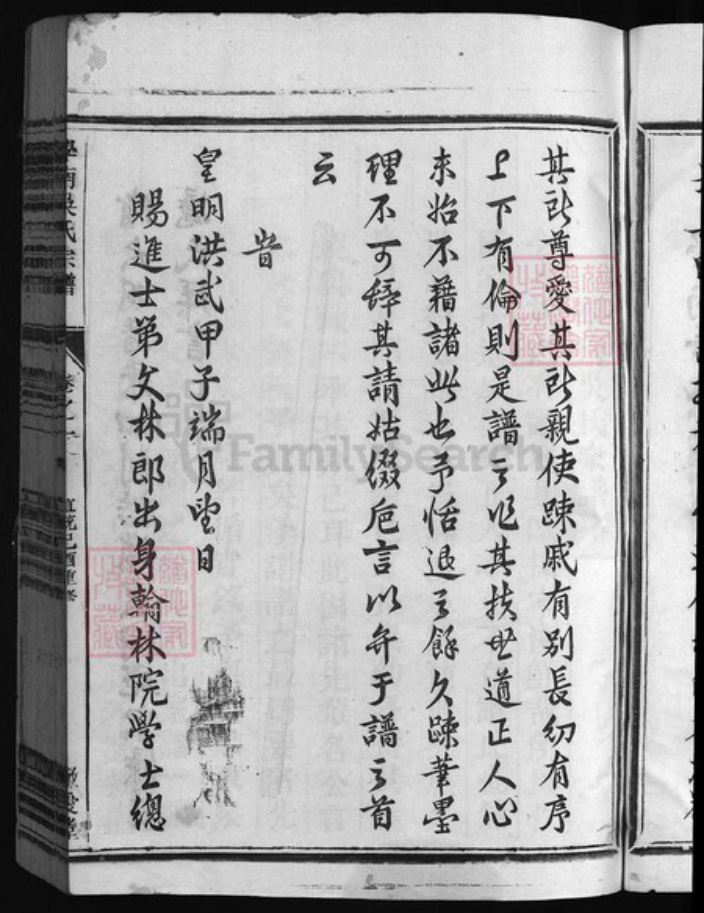 其所尊愛其所親使踈戚有別長幼有序
上下有倫則是譜之作其扶世道正人心
未始不藉諸此也予恬退之餘久踈筆墨
理不可辭其請姑綴卮言以弁于譜之首
云
旹
皇明洪武甲子端月望日
賜進士第文林郎出身翰林院學士總
吳氏宗譜
卷之一
宣統己酉重修
FamilySearch